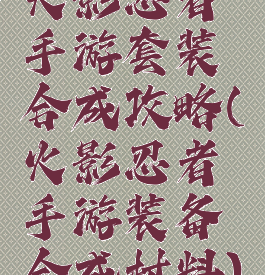 火影忍者
手游套装
合成攻略(
火影忍者
手游装备
合成材料)